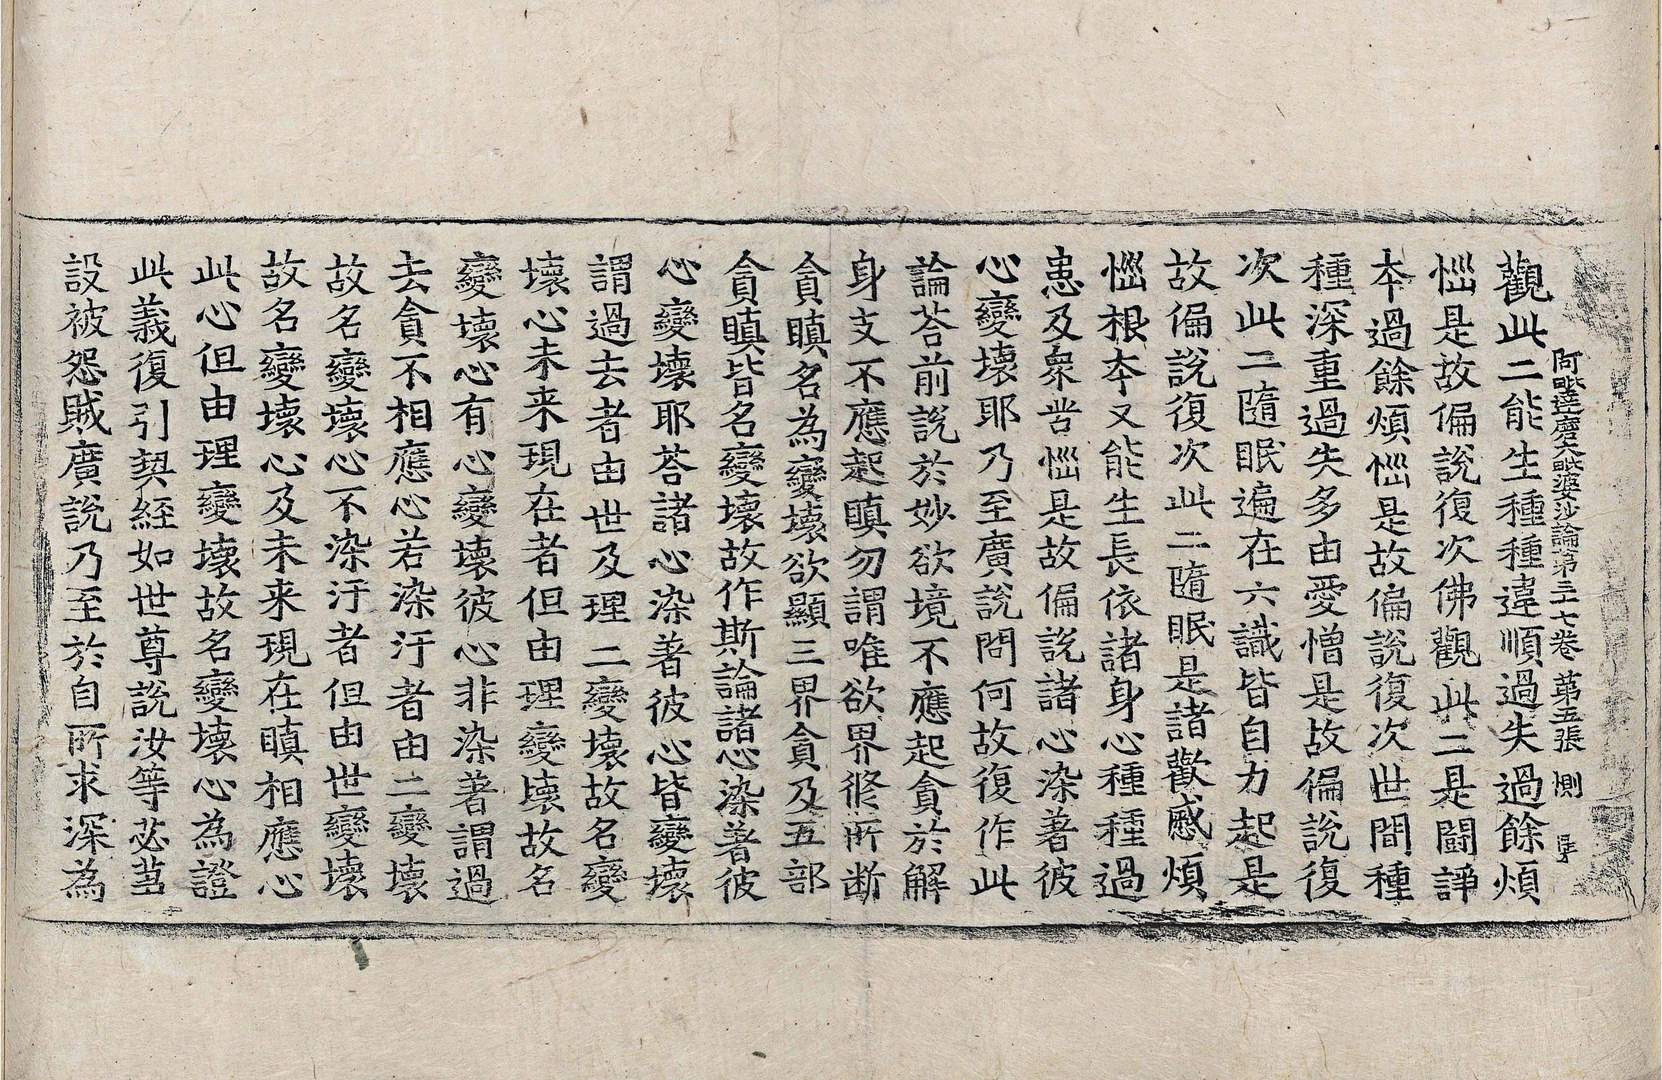 阿毗達磨大毗婆沙論第三十七卷 第五張 惻
觀此二能生種種違順過失過餘煩
惱是故偏說復次佛觀此二是鬪諍
本過餘煩惱是故偏說復次世間種
種深重過失多由愛憎是故偏說復
次此二隨眠遍在六識皆自力起是
故偏說復次此二隨眠是諸歡慼煩
惱根本又能生長依諸身心種種過
患及衆苦惱是故偏說諸心染著彼
心變壞耶乃至廣說問何故復作此
論荅前說於妙欲境不應起貪於解
身支不應起瞋勿謂唯欲界修所斷
貪瞋名為變壞欲顯三界貪及五部
貪瞋皆名變壞故作斯論諸心染著彼
心變壞耶荅諸心染著彼心皆變壞
謂過去者由世及理二變壞故名變
壞心未来現在者但由理變壞故名
變壞心有心變壞彼心非染著謂過
去貪不相應心若染汙者由二變壞
故名變壞心不染汙者但由世變壞
故名變壞心及未来現在瞋相應心
此心但由理變壞故名變壞心為證
此義復引契經如世尊說汝等苾芻
設被怨賊廣說乃至於自所求深為